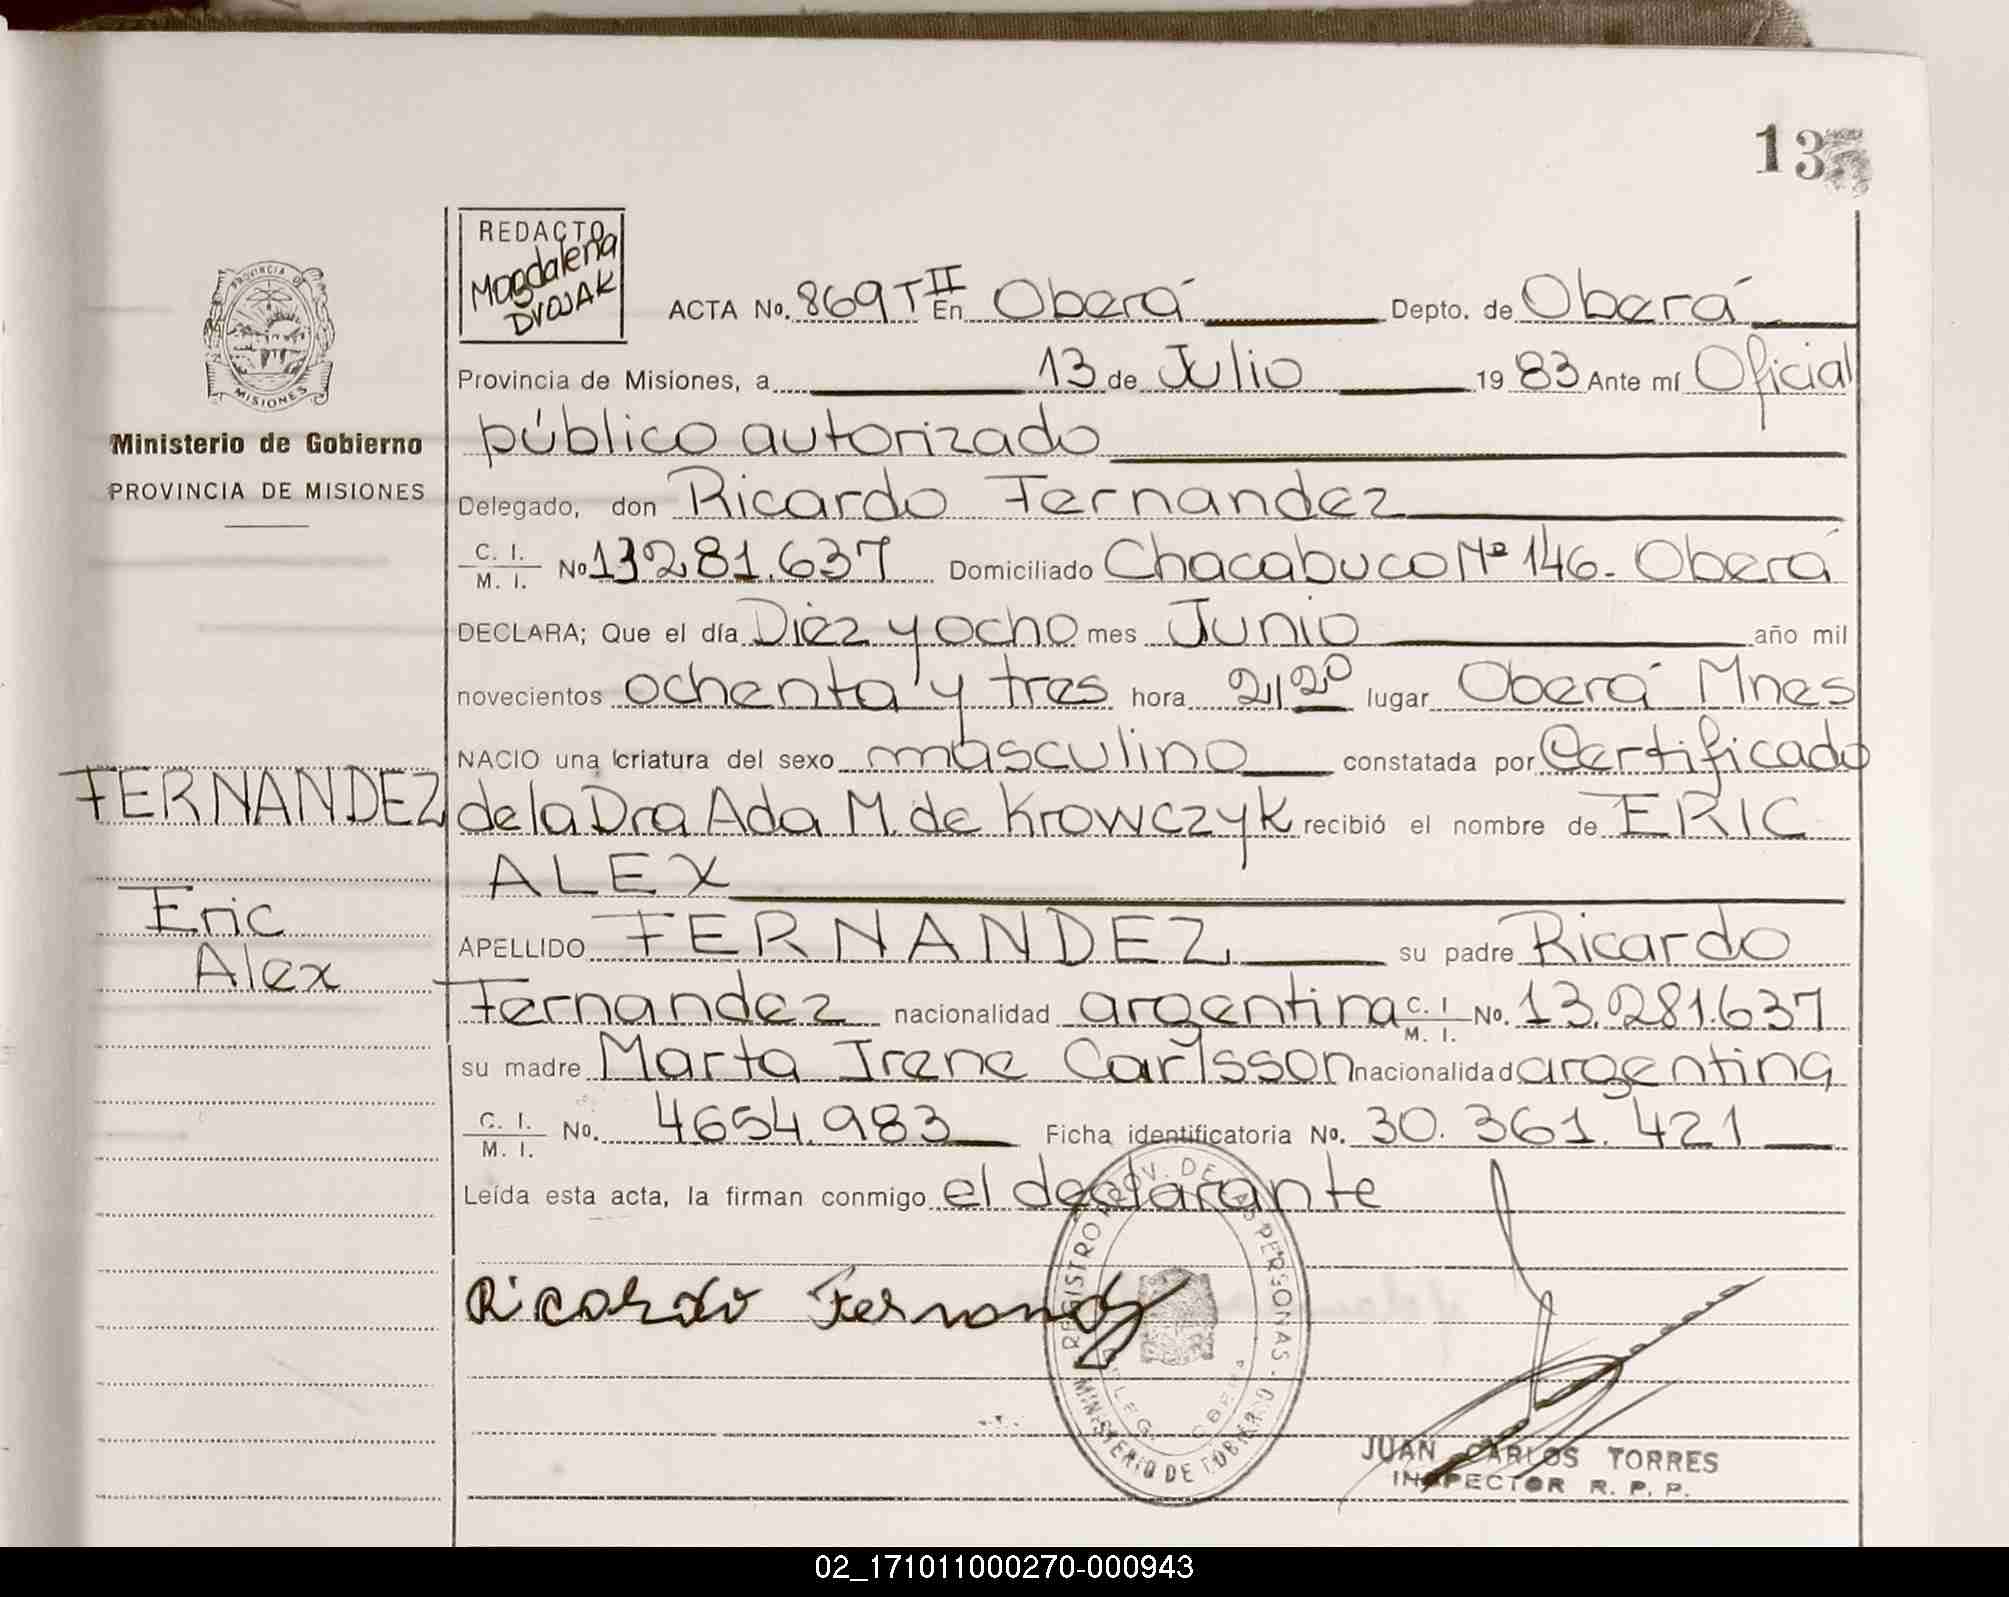 13
REDACTO
Magdalena
Dvojak
ACTA No. 869 T II En Oberá Depto. de Oberá
Provincia de Misiones, a 13 de Julio 19 83 Ante mí Oficial
público autorizado
Delegado, don Ricardo Fernandez
C. I. / M. I. No 13281.637 Domiciliado Chacabuco Nº 146. Oberá
DECLARA; Que el día Diez y ocho mes Junio año mil
novecientos ochenta y tres hora 21,20 lugar Oberá Mnes
NACIO una criatura del sexo masculino constatada por Certificado
de la Dra Ada M. de Krowczyk recibió el nombre de ERIC
ALEX
APELLIDO FERNANDEZ su padre Ricardo
Fernandez nacionalidad argentina C. I. / M. I. No. 13.281.637
su madre Marta Irene Carlsson nacionalidad argentina
C. I. / M. I. No. 4654.983 Ficha identificatoria No. 30.361.421
Leída esta acta, la firman conmigo el declarante
Ricardo Fernandez
REGISTRO PROV. DE LAS PERSONAS
MINISTERIO DE GOBIERNO
JUAN CARLOS TORRES
INSPECTOR R. P. P.
PROVINCIA DE
MISIONES
Ministerio de Gobierno
PROVINCIA DE MISIONES
FERNANDEZ
Eric
Alex
02_171011000270-000943